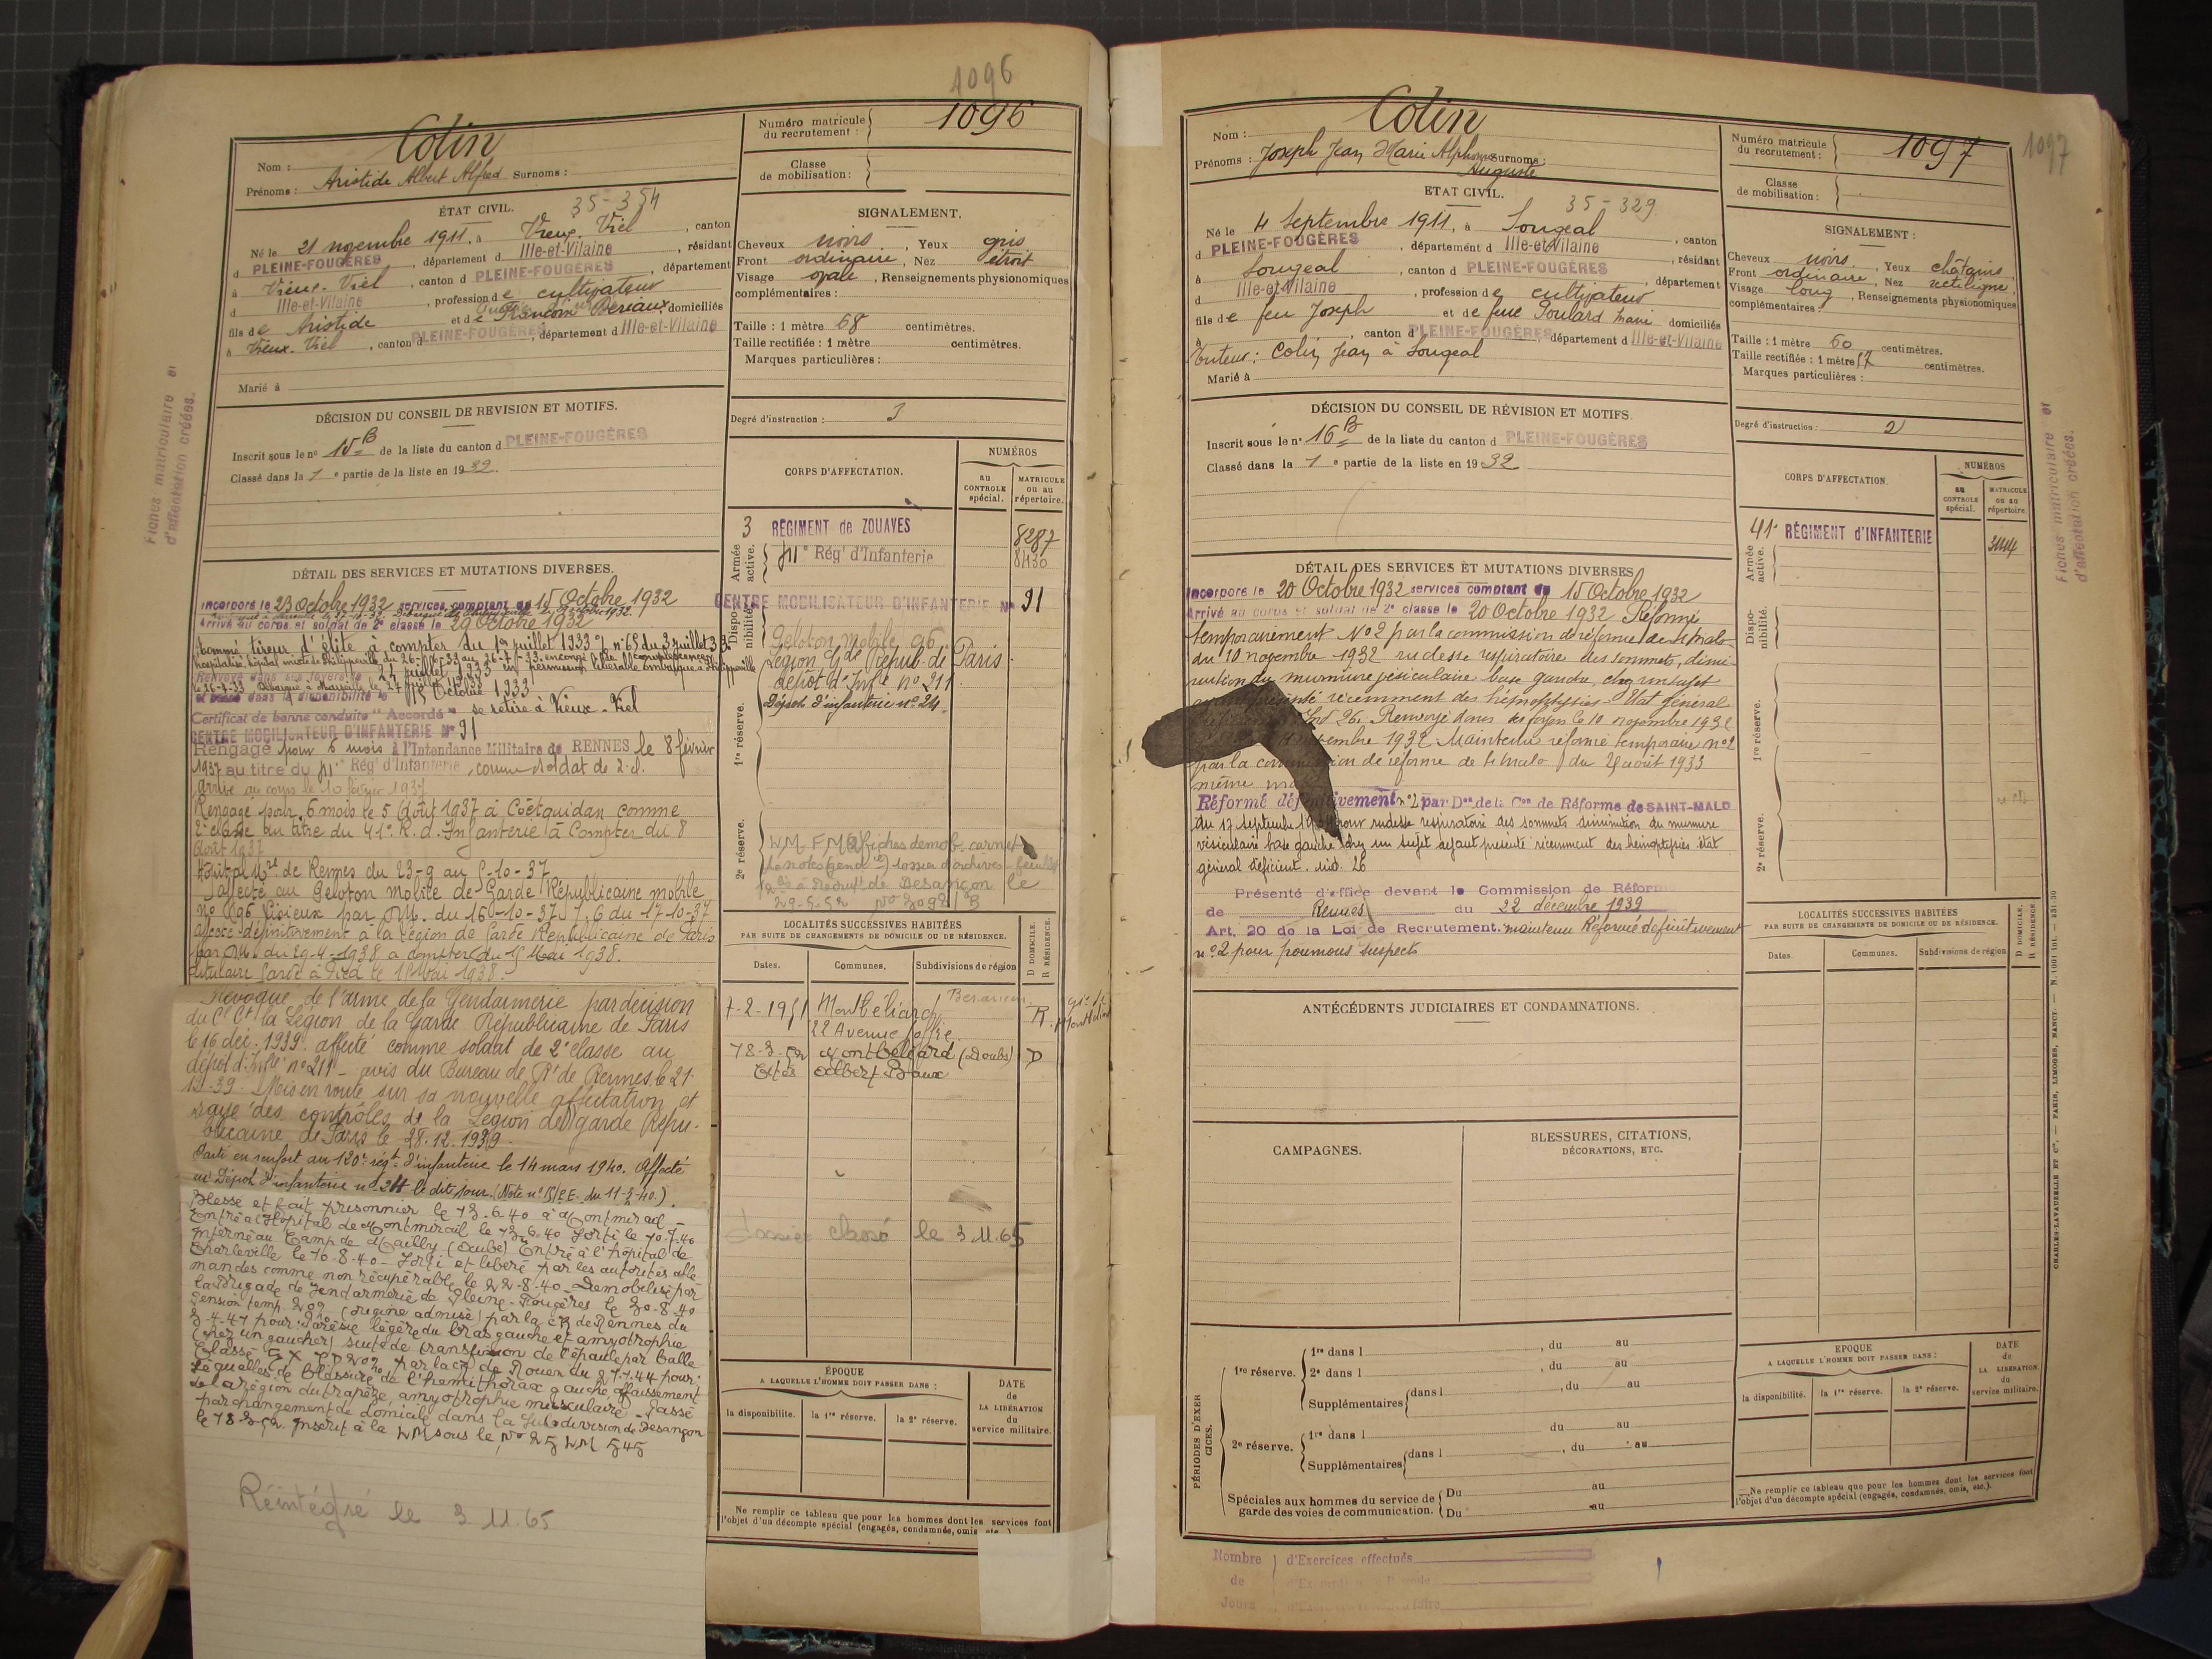 1096
Nom : Colin
Prénoms : Aristide Albert Alfred Surnoms :
Numéro matricule du recrutement : 1096
Classe de mobilisation :
ÉTAT CIVIL. 35-354
Né le 21 novembre 1911, à Vieux-Viel, canton
d PLEINE-FOUGÈRES, département d Ille-et-Vilaine, résidant
à Vieux-Viel, canton d PLEINE-FOUGÈRES, département
d Ille-et-Vilaine, profession de cultivateur
fils de Aristide et de Françoise Deriaux, domiciliés
à Vieux-Viel, canton d PLEINE-FOUGÈRES, département d Ille-et-Vilaine
Marié à
SIGNALEMENT.
Cheveux noirs, Yeux gris
Front ordinaire, Nez étroit
Visage ovale, Renseignements physionomiques
complémentaires :
Taille : 1 mètre 68 centimètres.
Taille rectifiée : 1 mètre centimètres.
Marques particulières :
Degré d'instruction : 3
DÉCISION DU CONSEIL DE REVISION ET MOTIFS.
Inscrit sous le n° 15 B de la liste du canton d PLEINE-FOUGÈRES
Classé dans la 1e partie de la liste en 1932.
CORPS D'AFFECTATION.
NUMÉROS
au CONTROLE spécial.
MATRICULE ou au répertoire.
Armée active.
3 RÉGIMENT de ZOUAVES 8287
41e Régt d'Infanterie 8430
Disponibilité.
CENTRE MOBILISATEUR D'INFANTERIE N° 91
Peloton mobile 96
Légion Gde Républ de Paris
dépôt d'Infie n° 211
Dépôt d'infanterie n° 24.
1re réserve.
2e réserve.
DÉTAIL DES SERVICES ET MUTATIONS DIVERSES.
Incorporé le 23 Octobre 1932 services comptant du 15 Octobre 1932
Arrivé au corps et soldat de 2e classe le 29 Octobre 1932
Nommé tireur d'élite à compter du 1er juillet 1933 n° 65 du 3 juillet 33
Certificat de bonne conduite "Accordé" se retire à Vieux-Viel
CENTRE MOBILISATEUR D'INFANTERIE N° 91
Rengagé pour 6 mois à l'Intendance Militaire de RENNES le 8 février
1937 au titre du 41e Régt d'Infanterie, comme soldat de 2e cl.
Arrivé au corps le 10 février 1937
Rengagé pour 6 mois le 5 Août 1937 à Coëtquidan comme
2e classe au titre du 41e R. d'Infanterie à compter du 8
Août 1937
Hôpital Mre de Rennes du 23-9 au 8-10-37
Affecté au Peloton mobile de Garde Républicaine mobile
n° 96 Lisieux par DM. du 16-10-37 du 17-10-37
affecté définitivement à la Légion de Garde Républicaine de Paris
par DM. du 29-4-1938 à compter du 1er Mai 1938.
titulaire Garde à Pied le 1er Mai 1938.
Révoqué de l'arme de la Gendarmerie par décision
du Cl Ct la Légion de la Garde Républicaine de Paris
le 16 déc. 1939 affecté comme soldat de 2e classe au
dépôt d'Infie n° 211 - avis du Bureau de Rt de Rennes le 21
12-39. Mis en route sur sa nouvelle affectation et
rayé des contrôles de la Légion de garde Répu-
blicaine de Paris le 28.12.1939.
Parti en renfort au 120e régt d'infanterie le 14 mars 1940. Affecté
au Dépôt d'infanterie n° 24 le dit jour (Note n° du 11-3-40.)
Blessé et fait prisonnier le 13.6.40 à Montmirail -
Entré à l'Hôpital de Montmirail le 13-6-40 Sorti le 10-7-40
Interné au Camp de Mailly (Aube) Entré à l'hôpital de
Charleville le 10-8-40 - Sorti et libéré par les autorités alle-
mandes comme non récupérable le 22-8-40 - Démobilisé par
la Brigade de Gendarmerie de Pleine-Fougères le 30-8-40
Pension temp. 20% (origine admise) par la CR de Rennes du
3-4-41 pour : Parésie légère du bras gauche et amyotrophie
(chez un gaucher) suite de transfixion de l'épaule par balle
par la CR de Rouen du 27-1-44 pour :
Séquelles de blessure de l'hémithorax gauche, affaissement
de la région du trapèze, amyotrophie musculaire - Passé
par changement de domicile dans la Subdivision de Besançon
le 18-3-52. Inscrit à la WM sous le N° 25 WM 545
Réintégré le 3.11.65
LOCALITÉS SUCCESSIVES HABITÉES
PAR SUITE DE CHANGEMENTS DE DOMICILE OU DE RÉSIDENCE.
Dates. Communes. Subdivisions de région D DOMICILE. R RÉSIDENCE
7-2-1951 Montbéliard Besançon R
22 Avenue Joffre
18-3-52 Montbéliard (Doubs) D
Cités Albert Baux
Dossier classé le 3.11.65
ÉPOQUE
A LAQUELLE L'HOMME DOIT PASSER DANS :
la disponibilité. la 1re réserve. la 2e réserve.
DATE de LA LIBÉRATION du service militaire.
Ne remplir ce tableau que pour les hommes dont les services font
l'objet d'un décompte spécial (engagés, condamnés, omis
Fiches matriculaire et
d'affectation créées.
1097
Nom : Colin
Prénoms : Joseph Jean Marie Alphonse Auguste Surnoms :
Numéro matricule du recrutement : 1097
Classe de mobilisation :
ETAT CIVIL. 35-329
Né le 4 Septembre 1911, à Sougeal, canton
d PLEINE-FOUGÈRES, département d Ille-et-Vilaine, résidant
à Sougeal, canton d PLEINE-FOUGÈRES, département
d Ille-et-Vilaine, profession de cultivateur
fils de feu Joseph et de feue Foulard Marie domiciliés
à , canton d PLEINE-FOUGÈRES, département d Ille-et-Vilaine
Tuteur : Colin Jean à Sougeal
Marié à
SIGNALEMENT :
Cheveux noirs, Yeux châtains
Front ordinaire, Nez rectiligne
Visage long, Renseignements physionomiques
complémentaires :
Taille : 1 mètre 60 centimètres.
Taille rectifiée : 1 mètre 57 centimètres.
Marques particulières :
Degré d'instruction : 2
DÉCISION DU CONSEIL DE RÉVISION ET MOTIFS.
Inscrit sous le n° 16 B de la liste du canton d PLEINE-FOUGÈRES
Classé dans la 1e partie de la liste en 1932
CORPS D'AFFECTATION.
NUMÉROS
au CONTROLE spécial.
MATRICULE ou au répertoire.
Armée active.
41e RÉGIMENT d'INFANTERIE
Disponibilité.
1re réserve.
2e réserve.
DÉTAIL DES SERVICES ET MUTATIONS DIVERSES
Incorporé le 20 Octobre 1932 services comptant du 15 Octobre 1932
Arrivé au corps et soldat de 2e classe le 20 Octobre 1932 Réformé
temporairement N° 2 par la commission de réforme de St Malo
du 10 novembre 1932 rudesse respiratoire des sommets, dimi-
nution du murmure vésiculaire base gauche, chez un sujet
présenté récemment des hémoptysies - Etat général
Ind 26. Renvoyé dans ses foyers le 10 novembre 1932
novembre 1932 Maintenu réformé temporaire n° 2
par la commission de réforme de St Malo du 29 août 1933
même
Réformé définitivement n° 2 par Don de la Con de Réforme de SAINT-MALO
du 17 septembre pour rudesse respiratoire des sommets diminution du murmure
vésiculaire base gauche chez un sujet ayant présenté récemment des hémoptysies état
général déficient. ind. 26
Présenté d'office devant la Commission de Réforme
de Rennes du 22 décembre 1939
Art. 20 de la Loi de Recrutement. maintenu Réformé définitivement
n° 2 pour poumons suspects
ANTÉCÉDENTS JUDICIAIRES ET CONDAMNATIONS.
CAMPAGNES.
BLESSURES, CITATIONS,
DÉCORATIONS, ETC.
LOCALITÉS SUCCESSIVES HABITÉES
PAR SUITE DE CHANGEMENTS DE DOMICILE OU DE RÉSIDENCE.
Dates. Communes. Subdivisions de région D DOMICILE. R RÉSIDENCE
PÉRIODES D'EXERCICES.
1re réserve. 1re dans l , du au
2e dans l , du au
Supplémentaires dans l , du au
, du au
2e réserve. 1re dans l du au
Supplémentaires dans l , du au
Spéciales aux hommes du service de Du au
garde des voies de communication. Du au
EPOQUE
A LAQUELLE L'HOMME DOIT PASSER DANS :
la disponibilité. la 1re réserve. la 2e réserve.
DATE de LA LIBÉRATION du service militaire.
Ne remplir ce tableau que pour les hommes dont les services font
l'objet d'un décompte spécial (engagés, condamnés, omis, etc.).
Nombre de Jours d'Exercices effectués
Fiches matriculaire et
d'affectation créées.
CHARLES-LAVAUZELLE ET Cie. — PARIS, LIMOGES, NANCY